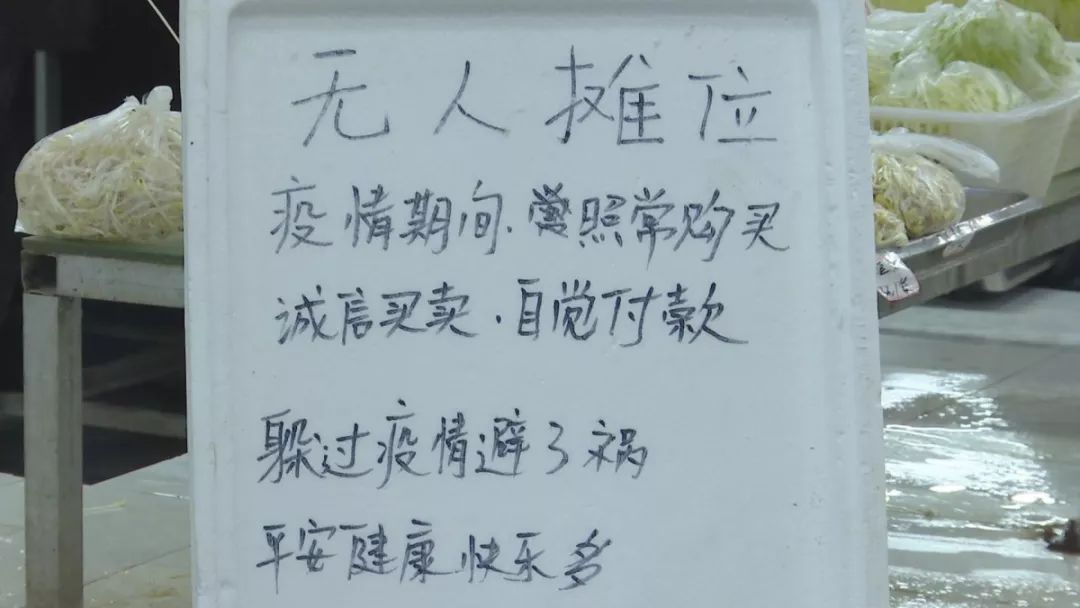 无人摊位
疫情期间.照常购买
诚信买卖.自觉付款
躲过疫情避了祸
平安健康快乐多